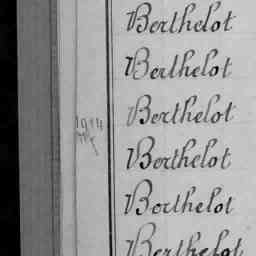 Berthelot
Berthelot
Berthelot
Berthelot
Berthelot
Berthelot